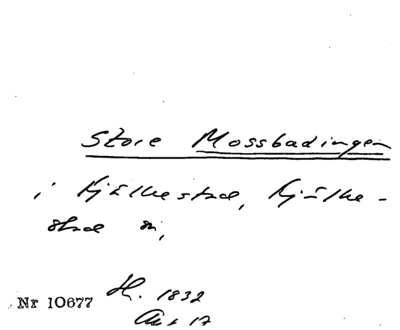 Store Mossbadingen
i Kjälkestad, Kjälke-
stad sn,
Nr 10677 H. 1832
Akt 17